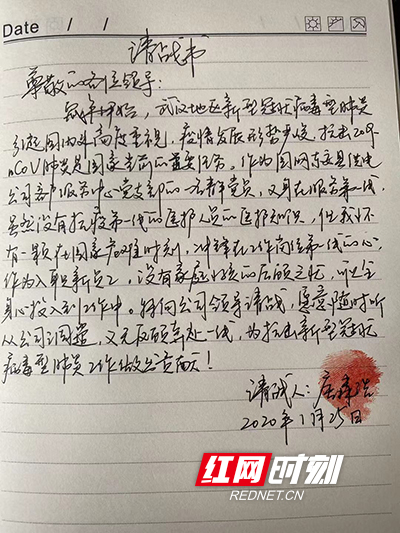 Date / /
请战书
尊敬的各位领导：
鼠年开始，武汉地区新型冠状病毒型肺炎
引起国内外高度重视，疫情发展形势严峻，抗击2019-
nCoV肺炎是国家当前的重要任务。作为国网东安县供电
公司客户服务中心党支部的一名群党员，又身在服务第一线，
虽然没有抗疫第一线的医护人员的医护知识，但我怀
有一颗在国家危难时刻，冲锋在工作岗位第一线的心，
作为入职新员工，没有家庭的后顾之忧，可以全
身心投入到工作中。特向公司领导请战，愿意随时听
从公司调遣，义无反顾奔赴一线，为抗击新型冠状
病毒型肺炎工作做出贡献！
请战人：
2020年1月25日
红网时刻
REDNET.CN